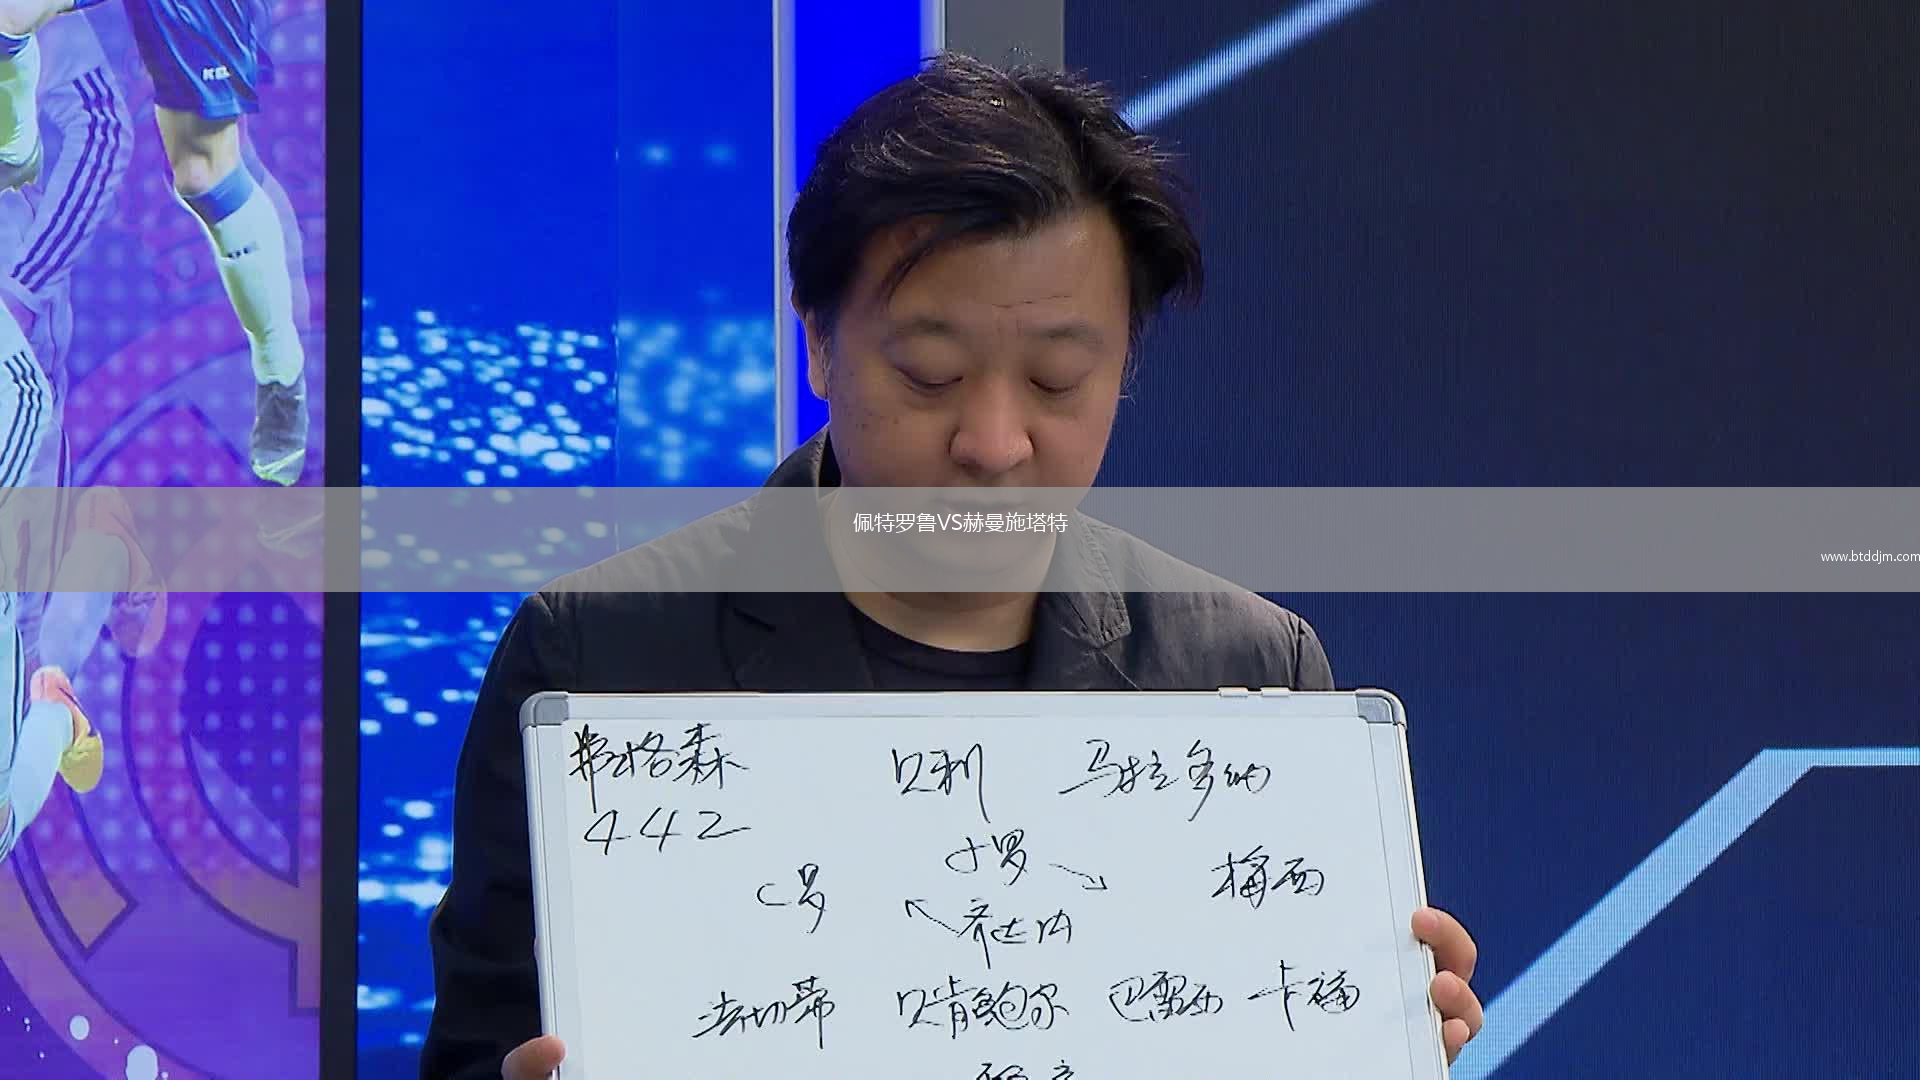 佩特罗鲁VS赫曼施塔特
www.btddjm.com
弗格森 贝利 马拉多纳
442
小罗
C罗 梅西
齐达内
法切蒂 贝肯鲍尔 巴雷西 卡福